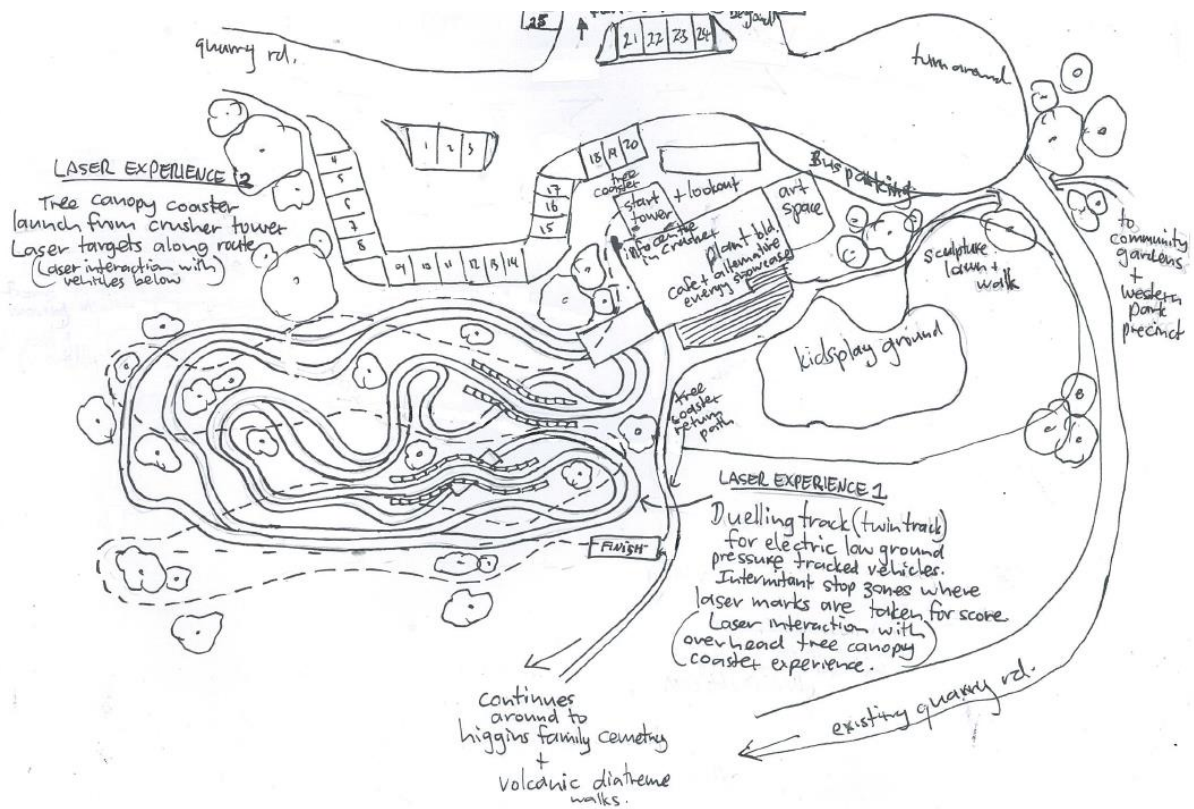 25
21 22 23 24
quarry rd.
turnaround
1 2 3
4
5
6
7
8
9 10 11 12 13 14
15
16
17
18 19 20
LASER EXPERIENCE 2
Tree canopy coaster
launch from crusher tower
Laser targets along route
(Laser interaction with)
vehicles below
tree
coaster
start
tower
+ lookout
info centre
in crusher
plant bld.
cafe + alternative
energy showcase
art
space
Bus parking
sculpture
lawn +
walk
to
community
gardens
+
western
park
precinct
kidsplay ground
tree
coaster
return
path
LASER EXPERIENCE 1
Duelling track (twin track)
for electric low ground
pressure tracked vehicles.
Intermitant stop zones where
laser marks are taken for score
(Laser interaction with
overhead tree canopy
coaster experience.)
FINISH
continues
around to
higgins family cemetry
+
volcanic diatreme
walks.
existing quarry rd.